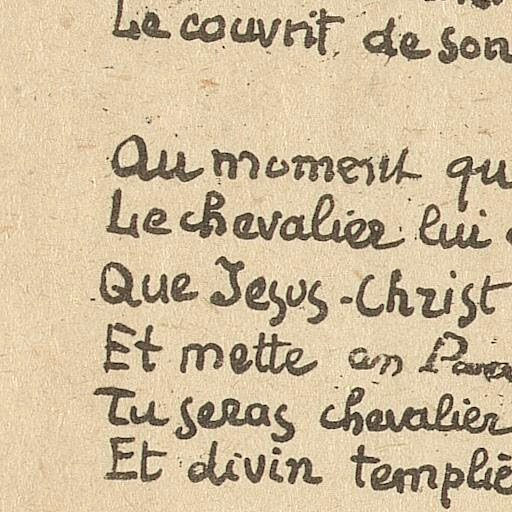 Le couvrit de son
Au moment qu
Le chevalier lui
Que Jesus-Christ
Et mette en
Tu seras chevalier
Et divin templiè